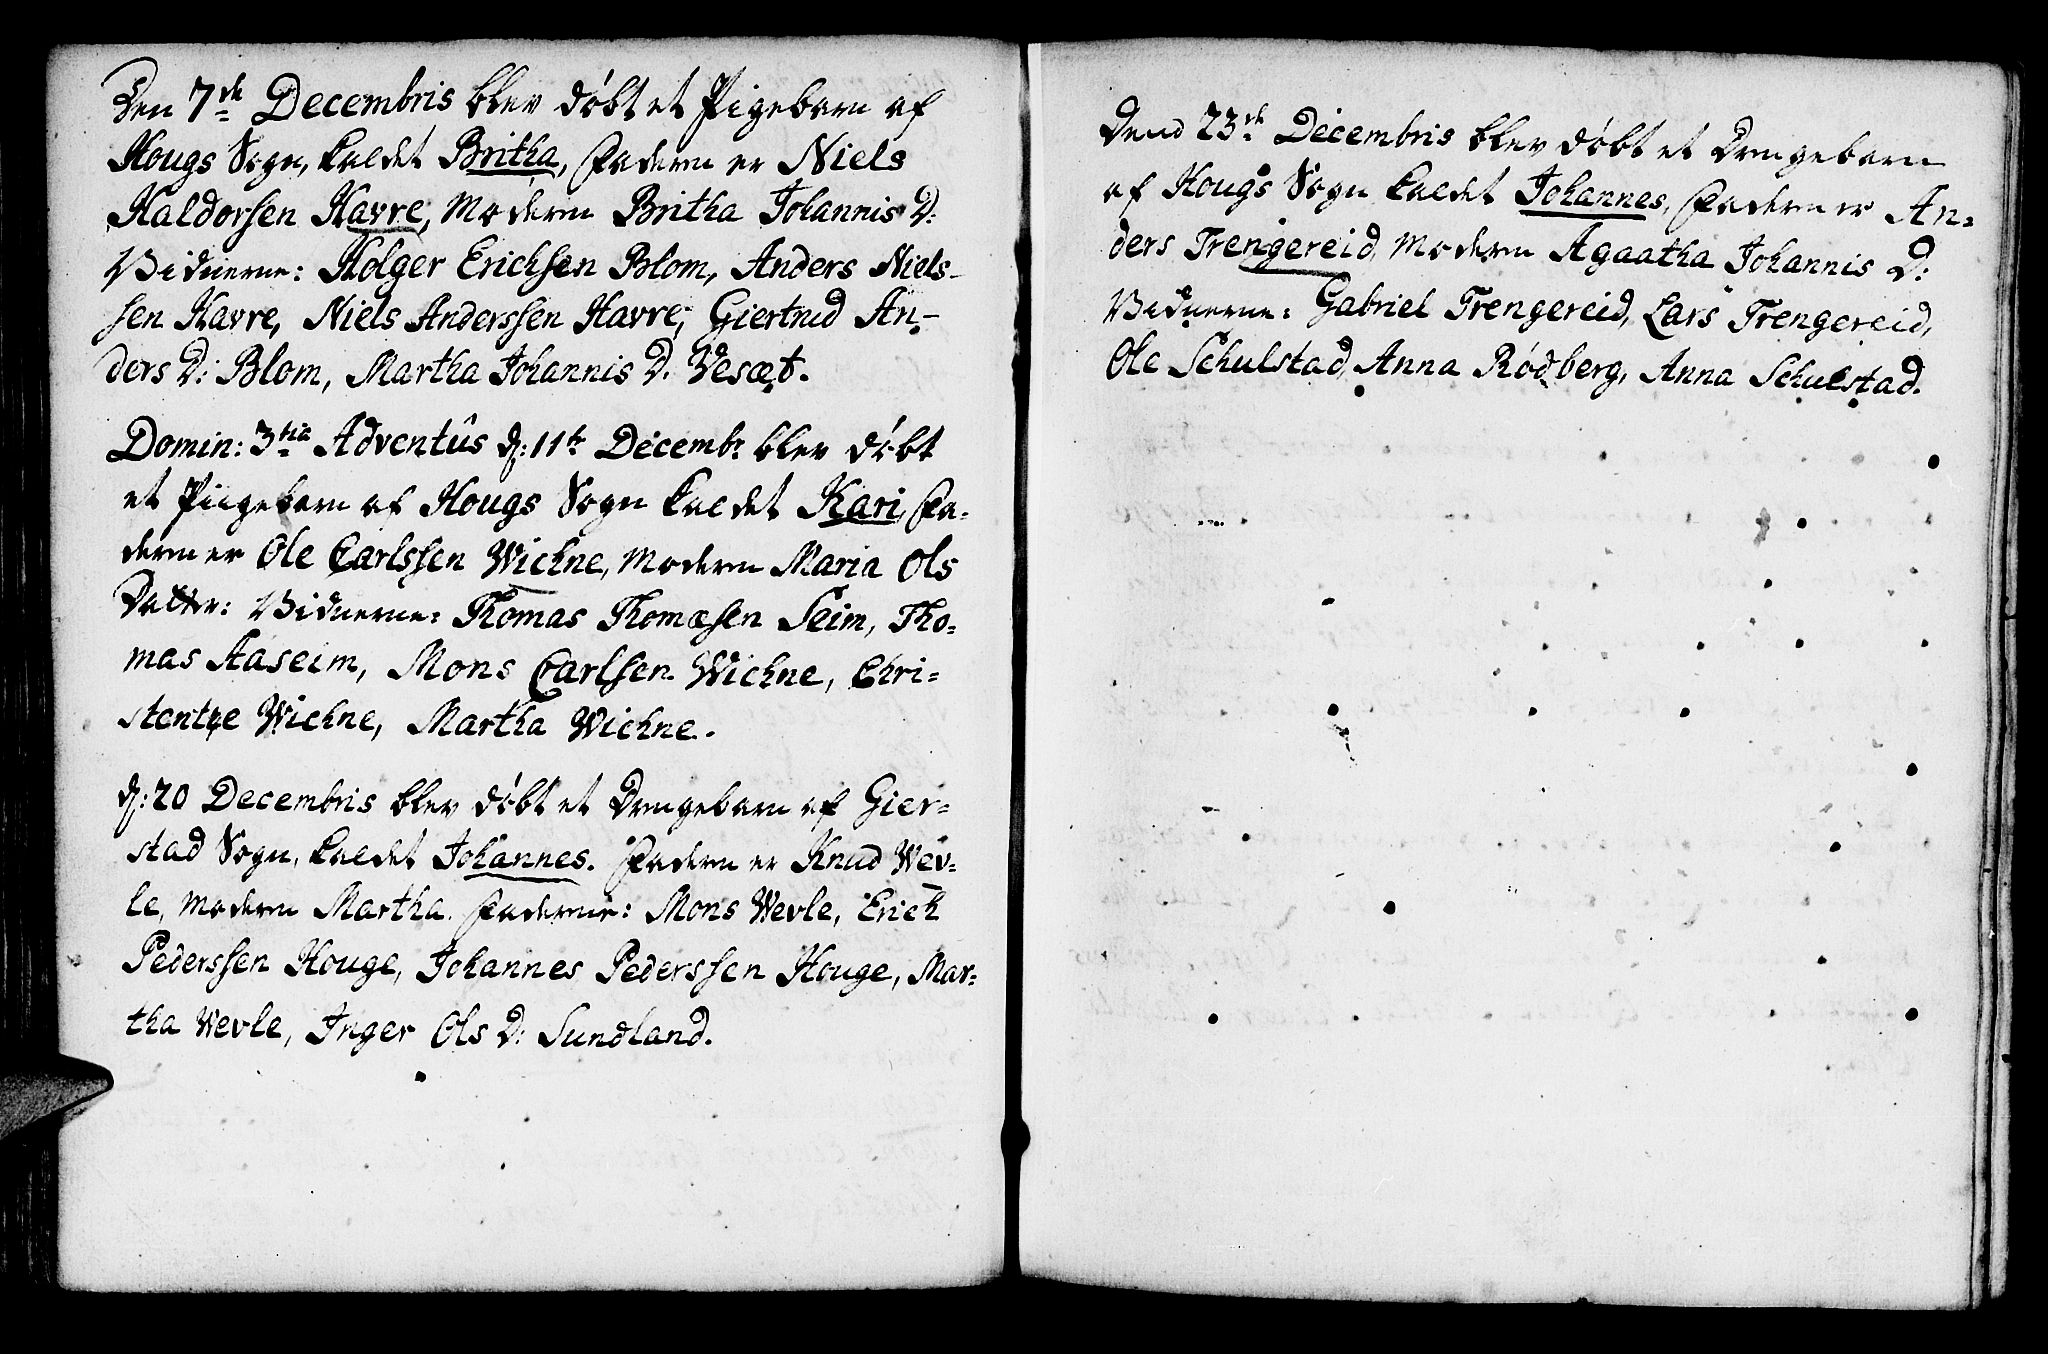 Den 7de Decembris blev döbt et Pigebarn af
Hougs Sogn, kaldet Britha, Faderen er Niels
Haldorsen Havre, Moderen Britha Johannis D:
Vidnerne: Holger Erichsen Blom, Anders Niels-
sen Havre, Niels Anderssen Havre, Giertrud An-
ders D: Blom, Martha Johannis D. Vesæt.
Domin: 3tia Adventûs d: 11te Decembr blev döbt
et Piigebarn af Hougs Sogn kaldet Kari, Fa-
deren er Ole Carlssen Wichne, Moderen Maria Ols
Datter: Vidnerne: Thomas Thomæsen Seim, Tho-
mas Aaseim, Mons Carlsen Wichne, Chri-
stentze Wichne, Martha Wichne.
d: 20 Decembris blev döbt et Drengebarn af Gier-
stad Sogn, kaldet Johannes. Faderen er Knud Wev-
le, Moderen Martha. Faderne: Mons Wevle, Erich
Pederssen Houge, Johannes Pederssen Houge, Mar-
tha Wevle, Inger Ols D: Sundland.
Dend 23de Decembris blev döbt et Drengebarn
af Hougs Sogn kaldet Johannes, Faderen er An-
ders Trengereid, Moderen Agaatha Johannis D:
Vidnerne: Gabriel Trengereid, Lars Trengereid,
Ole Schulstad, Anna Rödberg, Anna Schulstad.